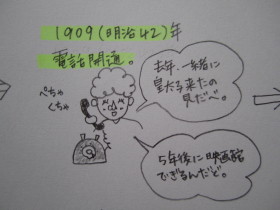 1909(明治42)年
電話開通。
去年、一緒に
皇太子来たの
見だべ〜。
ぺちゃ
くちゃ
5年後に映画館
でぎるんだど。